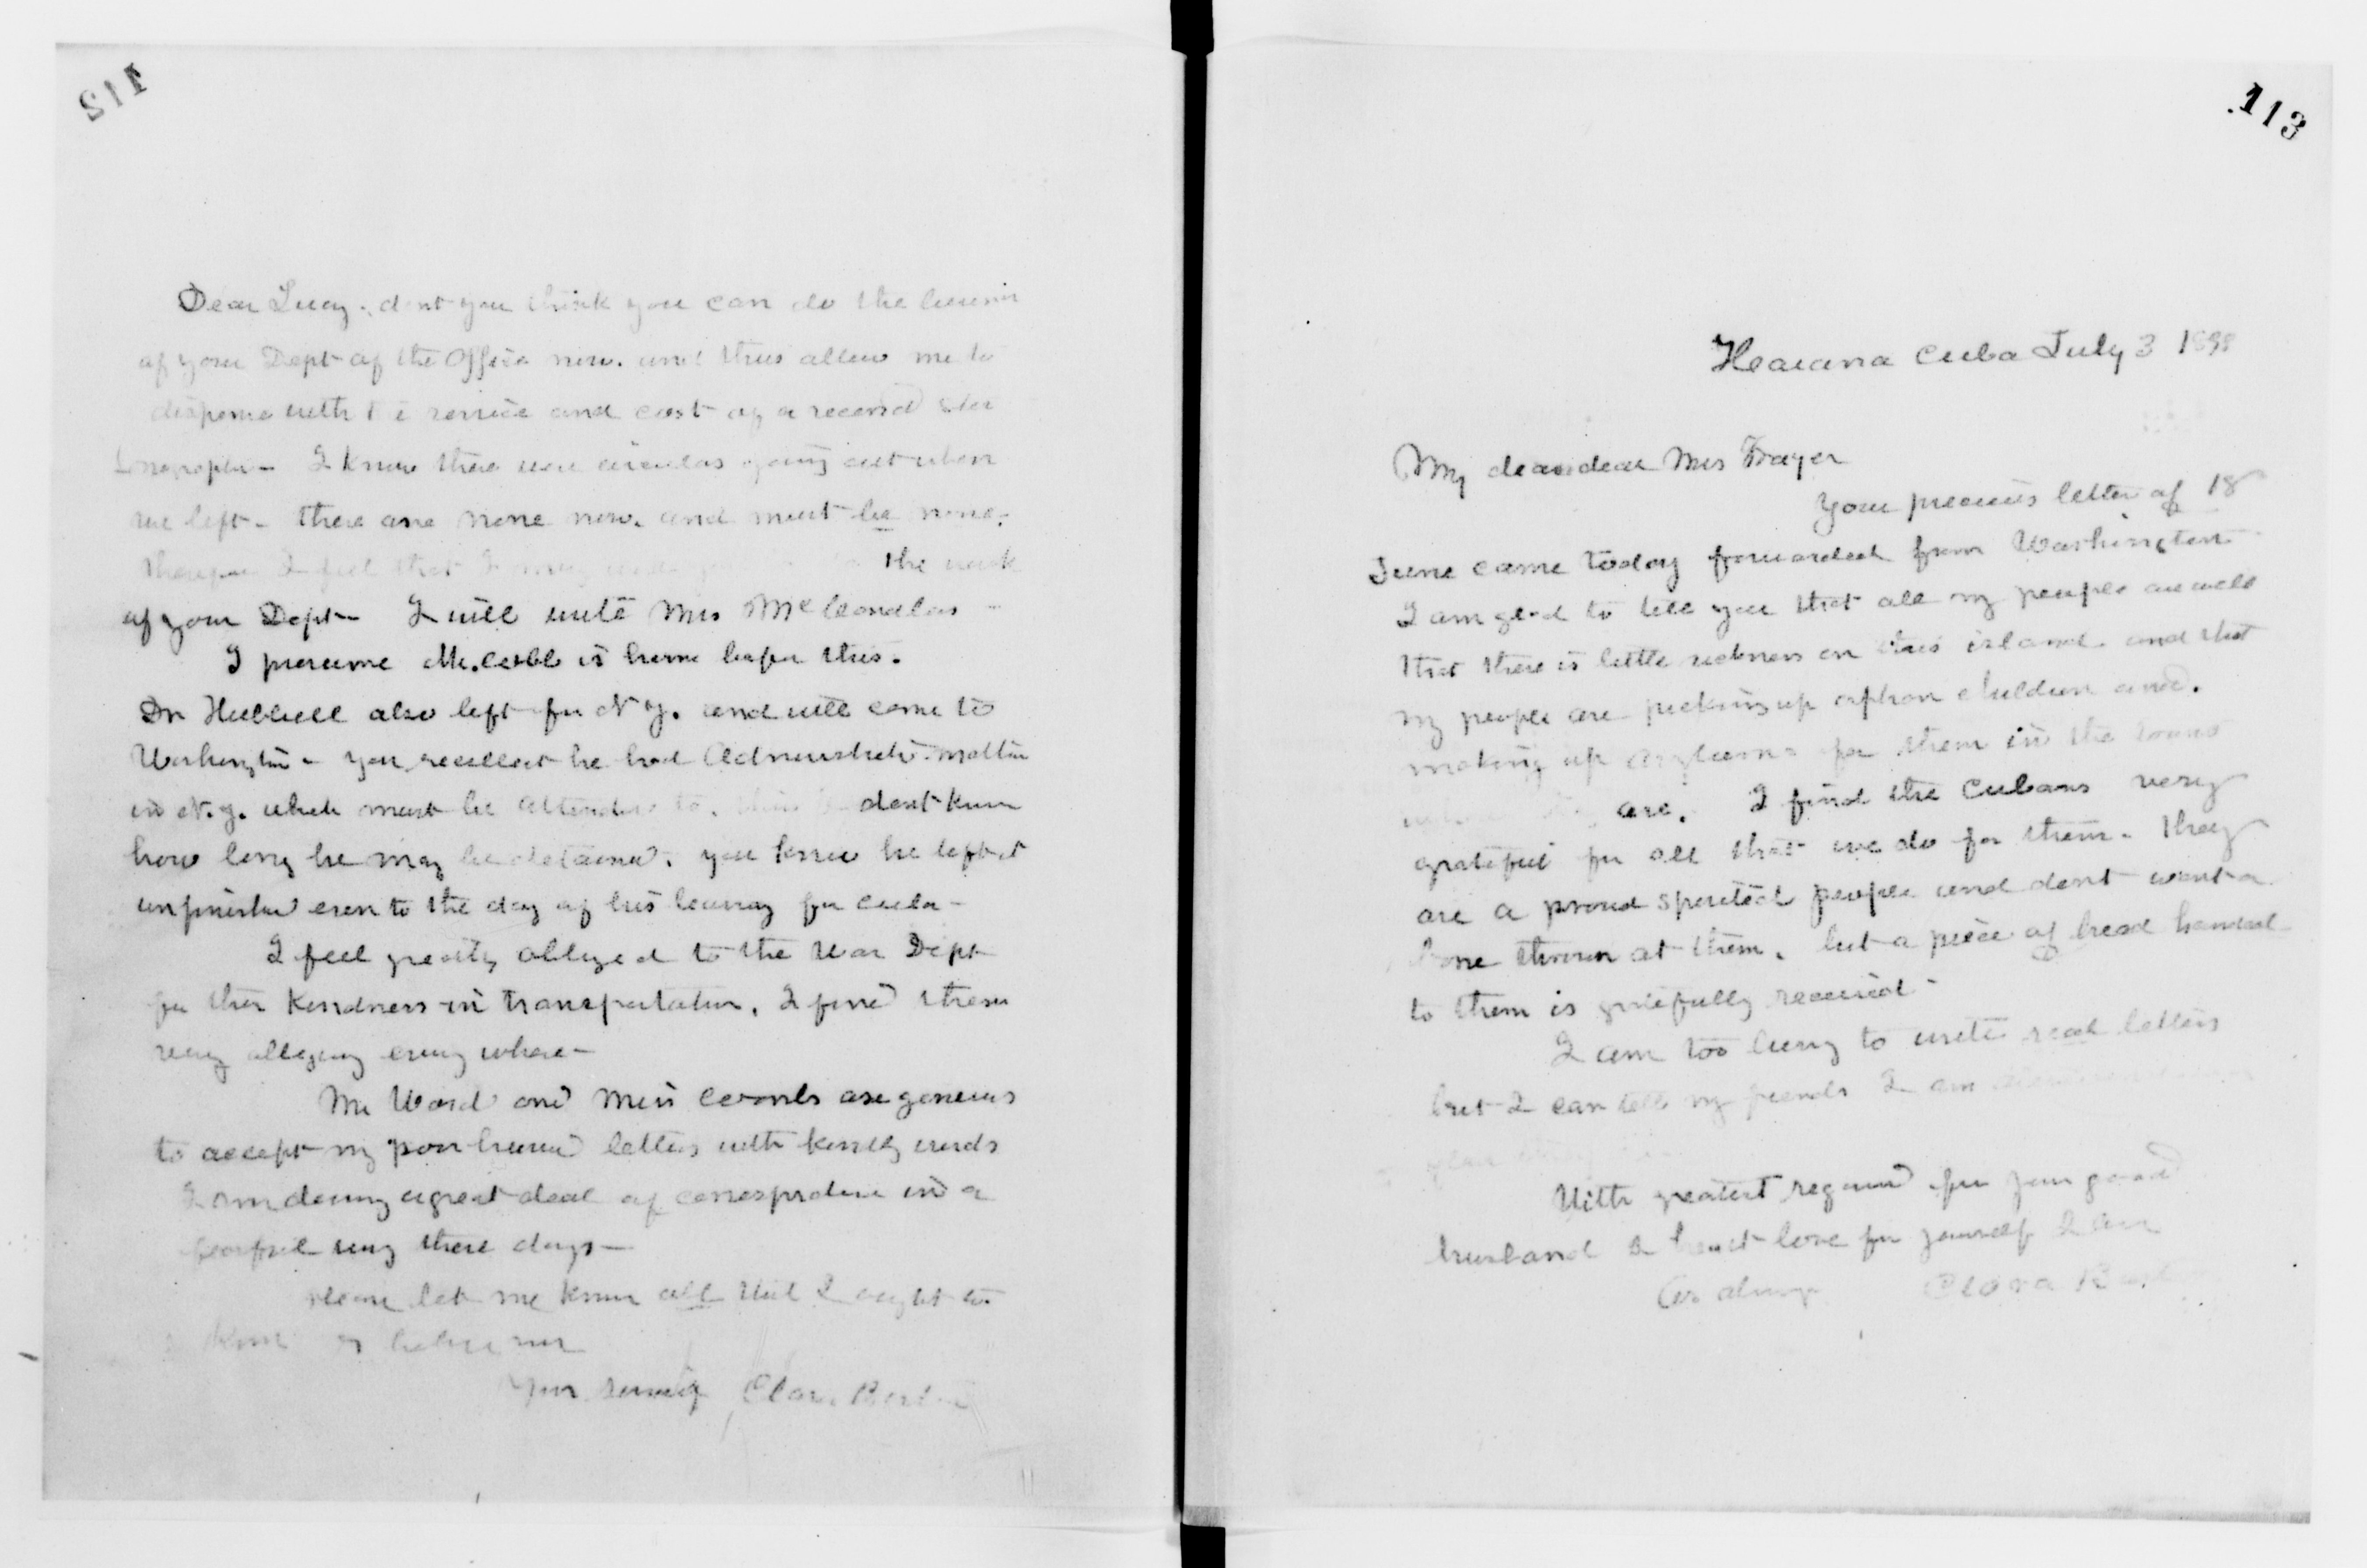 112
Dear Lucy. dont you think you can do the business
of your Dept of the Office now. and thus allow me to
dispense with the service and cost of a second ste
I know there were circulars going out when
we left - there are none now. and must be none.
therefore I feel that I may the work
of your Dept - I will write Mrs
I presume Mr. Cobb is home before this.
Dr Hubbell also left for N Y. and will come to
Washington - you recollect he had matter
in N.Y. which must be attended to. dont know
how long he may be detained. you know he left it
unfinished even to the day of his leaving for Cuba -
I feel greatly obliged to the War Dept
for their kindness in transportation, I find them
very obliging every where -
Mr Ward and Miss Coombs are generous
to accept my poor hurried letters with kindly words
I am doing a great deal of correspondence in a
way these days -
Please let me know all that I ought to
know & believe me
Clara Barton
113
Havana Cuba July 3 1899
My dear dear Mrs Thayer
Your precious letter of 18
June came today forwarded from Washington
I am glad to tell you that all my people are well
that there is little sickness on this island and that
my people are picking up orphan children and
making up asylums for them in the towns
are. I find the Cubans very
grateful for all that we do for them - They
are a proud spirited people and dont want a
bone thrown at them, but a piece of bread handed
to them is gratefully received -
I am too busy to write real letters
but I can tell my friends I am
With greatest regard for your good
husband & love for yourself I am
As always Clara Barton